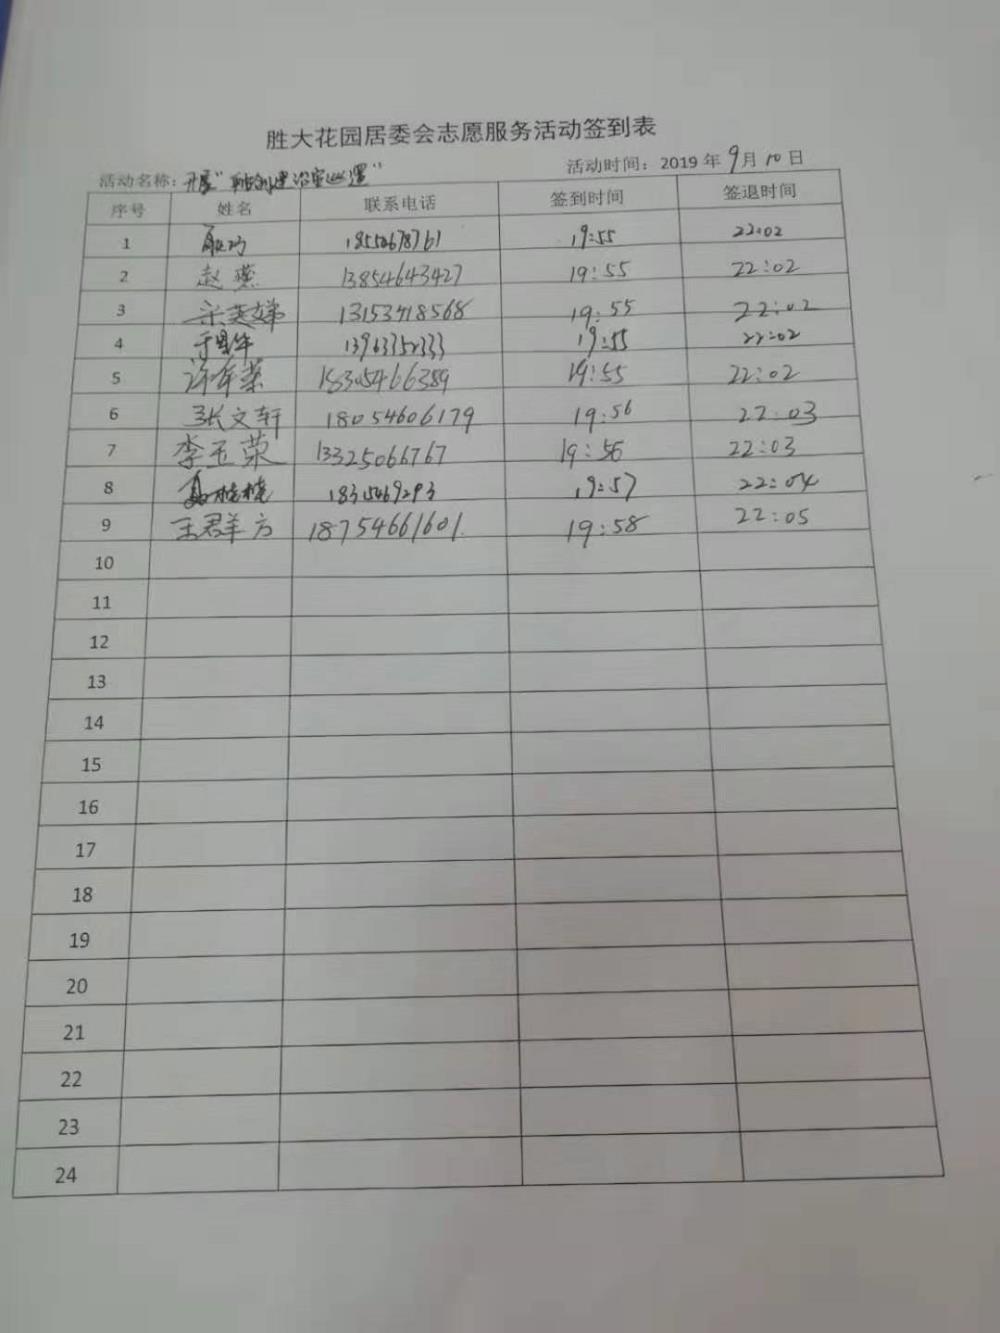 胜大花园居委会志愿服务活动签到表
活动名称: 开展" 治安巡逻" 活动时间: 2019 年 9 月 10 日
序号 姓名 联系电话 签到时间 签退时间
1 19:55 22:02
2 赵燕 13854643427 19:55 22:02
3 宋英娣 13153418568 19:55 22:02
4 13963352333 19:55 22:02
5 许军荣 18305466389 19:55 22:02
6 张文轩 18054606179 19:56 22:03
7 李玉荣 13325066767 19:56 22:03
8 19:57 22:04
9 王群方 18754661601 19:58 22:05
10
11
12
13
14
15
16
17
18
19
20
21
22
23
24